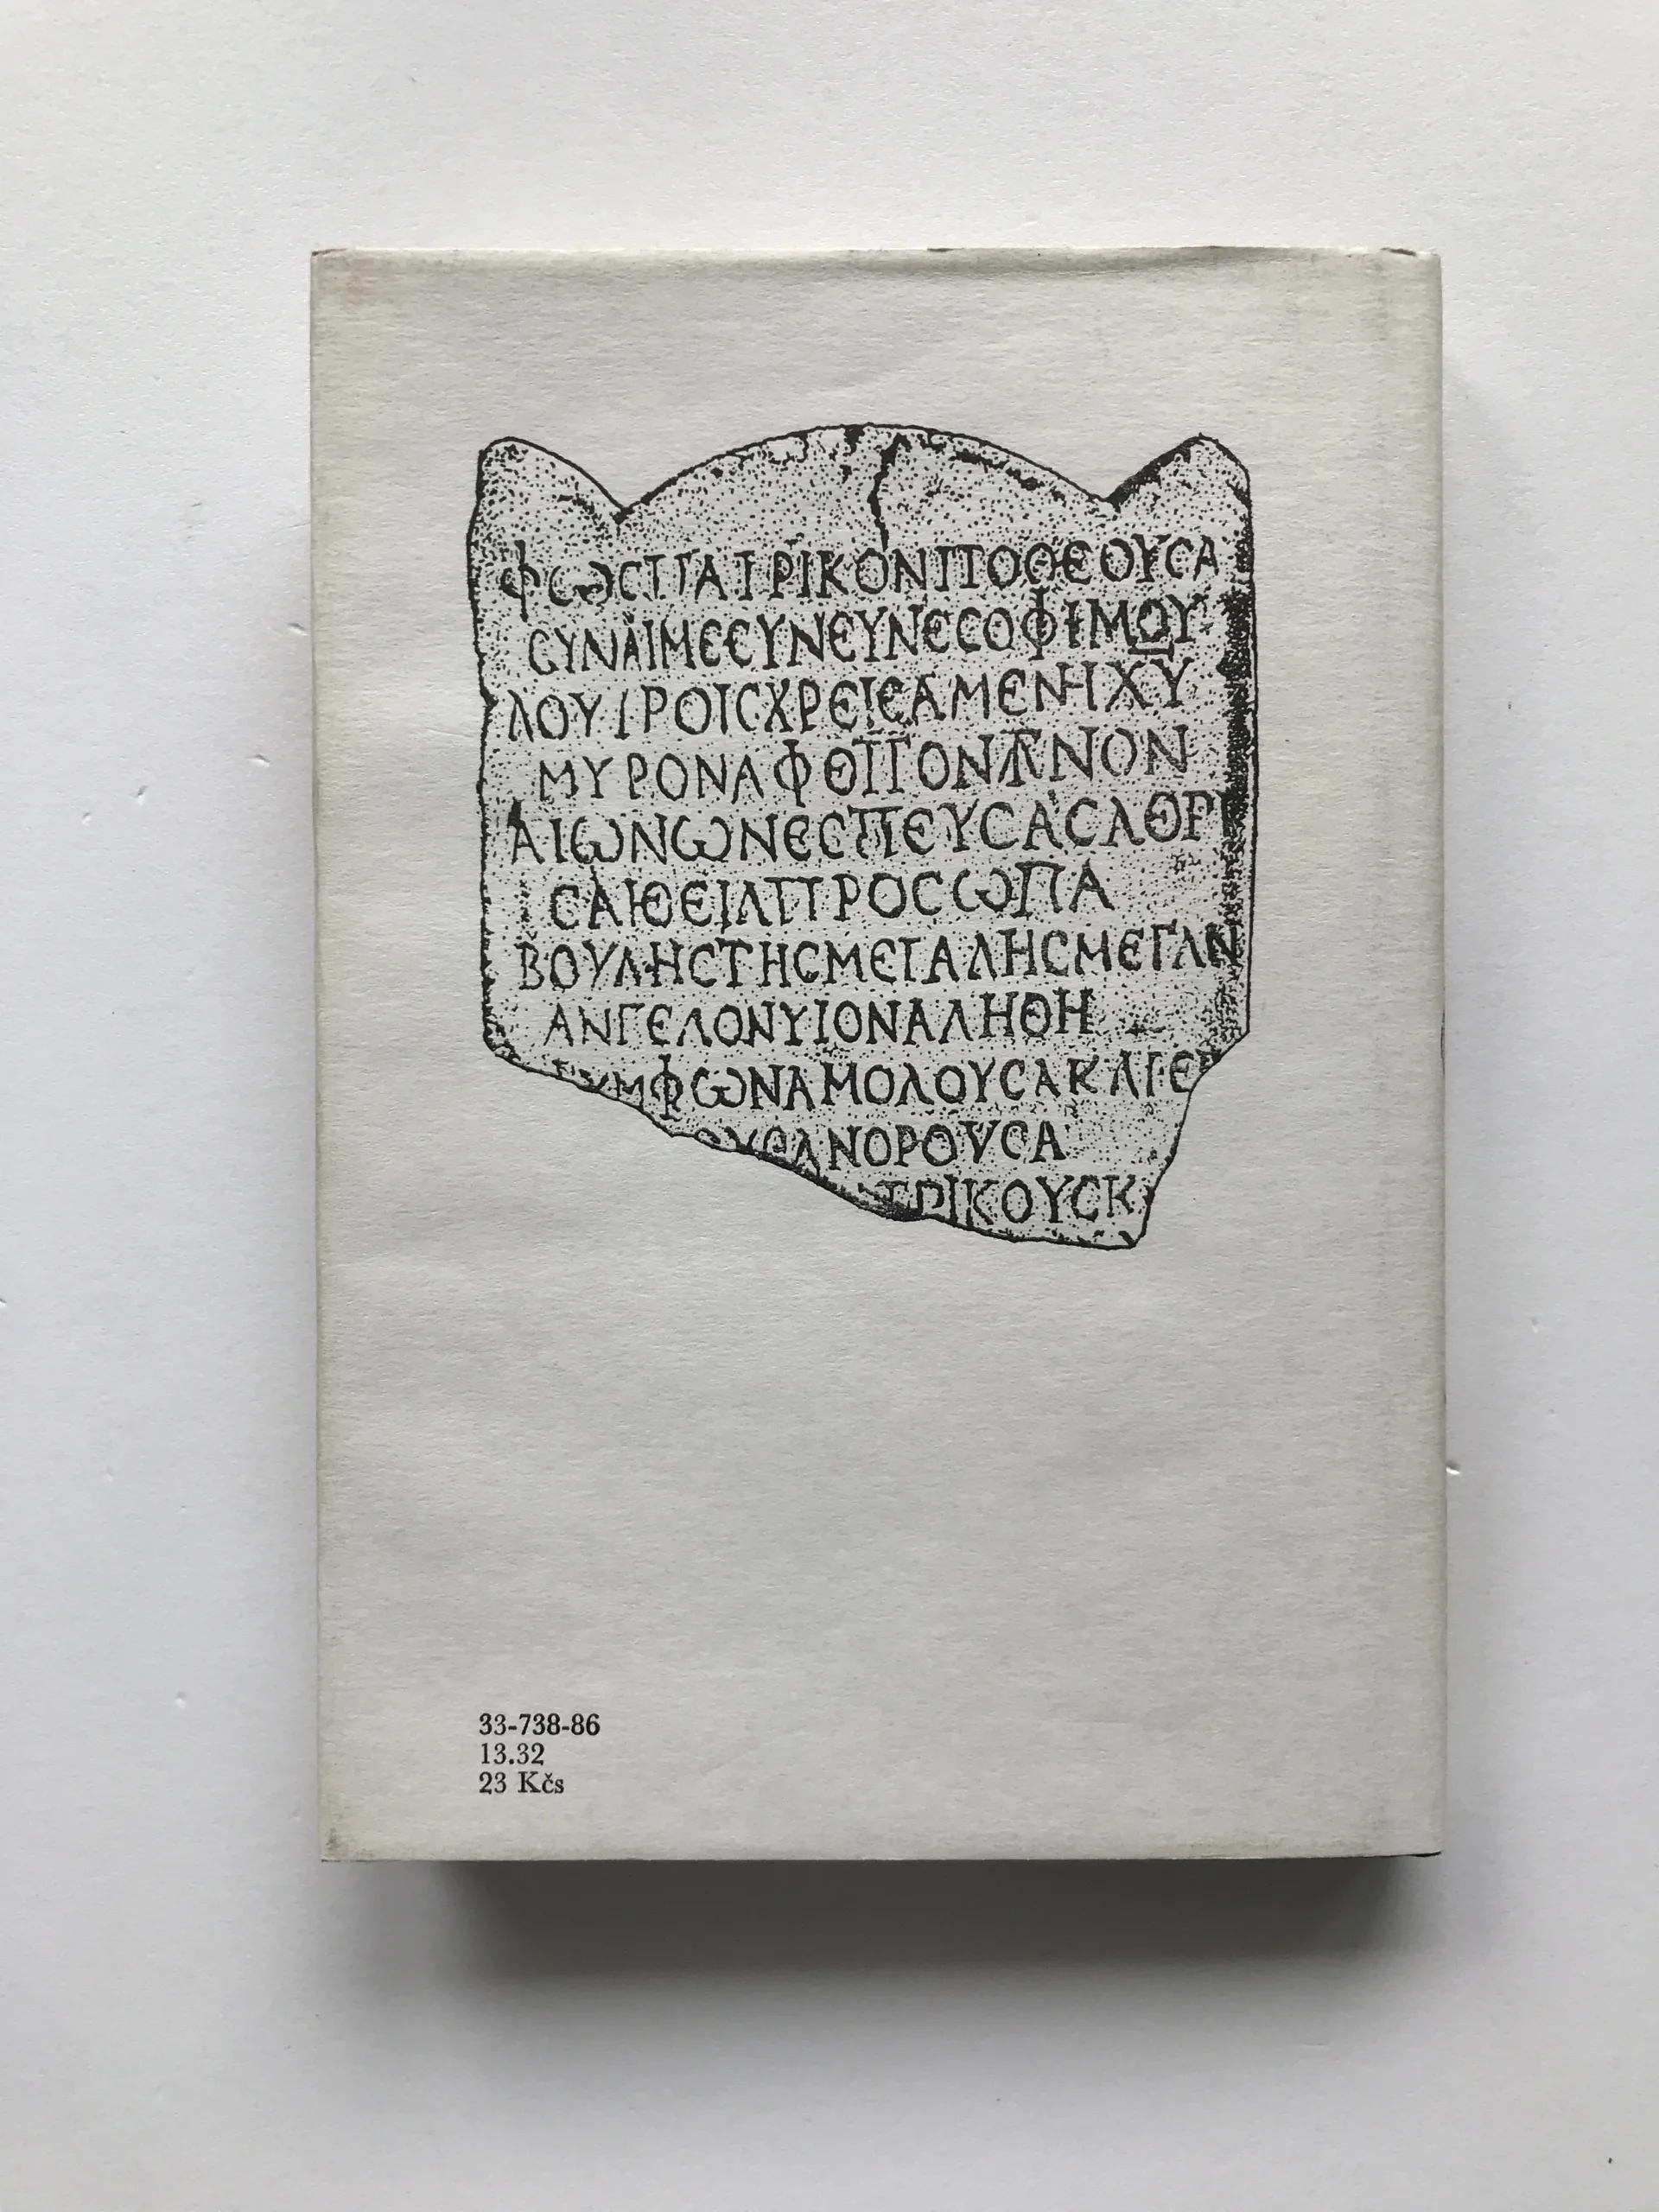 ΦΩΣΠΑΤΡΙΚΟΝΠΟΘΕΟΥΣΑ
ΣΥΝΑΙΜΕΣΥΝΕΥΝΕΣΟΦΗΜΟΥ
ΛΟΥΤΡΟΙΣΧΡΕΙΣΑΜΕΝΗΧΥ
ΜΥΡΟΝΑΦΘΙΤΟΝΑΓΝΟΝ
ΑΙΩΝΩΝΕΣΠΕΥΣΑΣΑΘΡΙ
ΣΑΙΘΕΙΑΠΡΟΣΩΠΑ
ΒΟΥΛΗΣΤΗΣΜΕΓΑΛΗΣΜΕΓΑΝ
ΑΝΓΕΛΟΝΥΙΟΝΑΛΗΘΗ
ΥΜΦΩΝΑΜΟΛΟΥΣΑΚΑΙΕΙ
ΑΝΟΡΟΥΣΑ
ΤΡΙΚΟΥΣΚ
33-738-86
13.32
23 Kčs